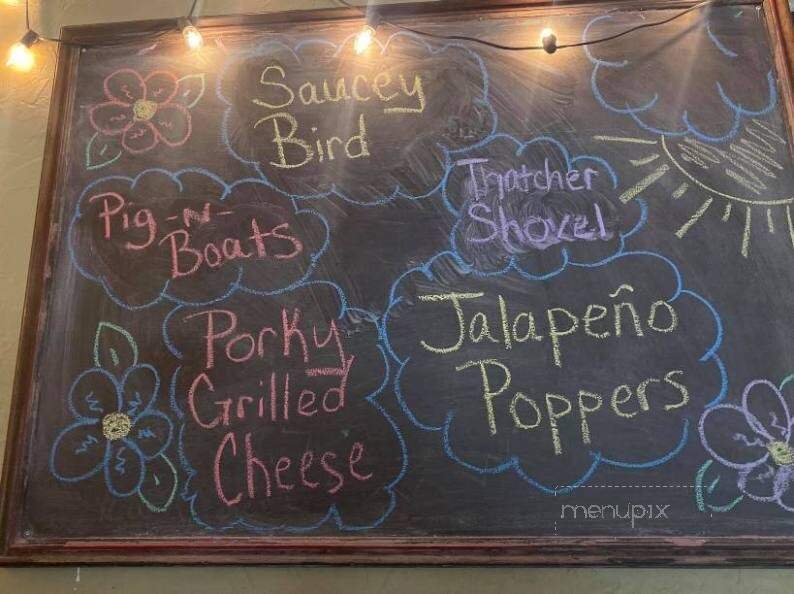 Saucey
Bird
Thatcher
Shovel
Pig-N-
Boats
Porky
Grilled
Cheese
Jalapeño
Poppers
menupix